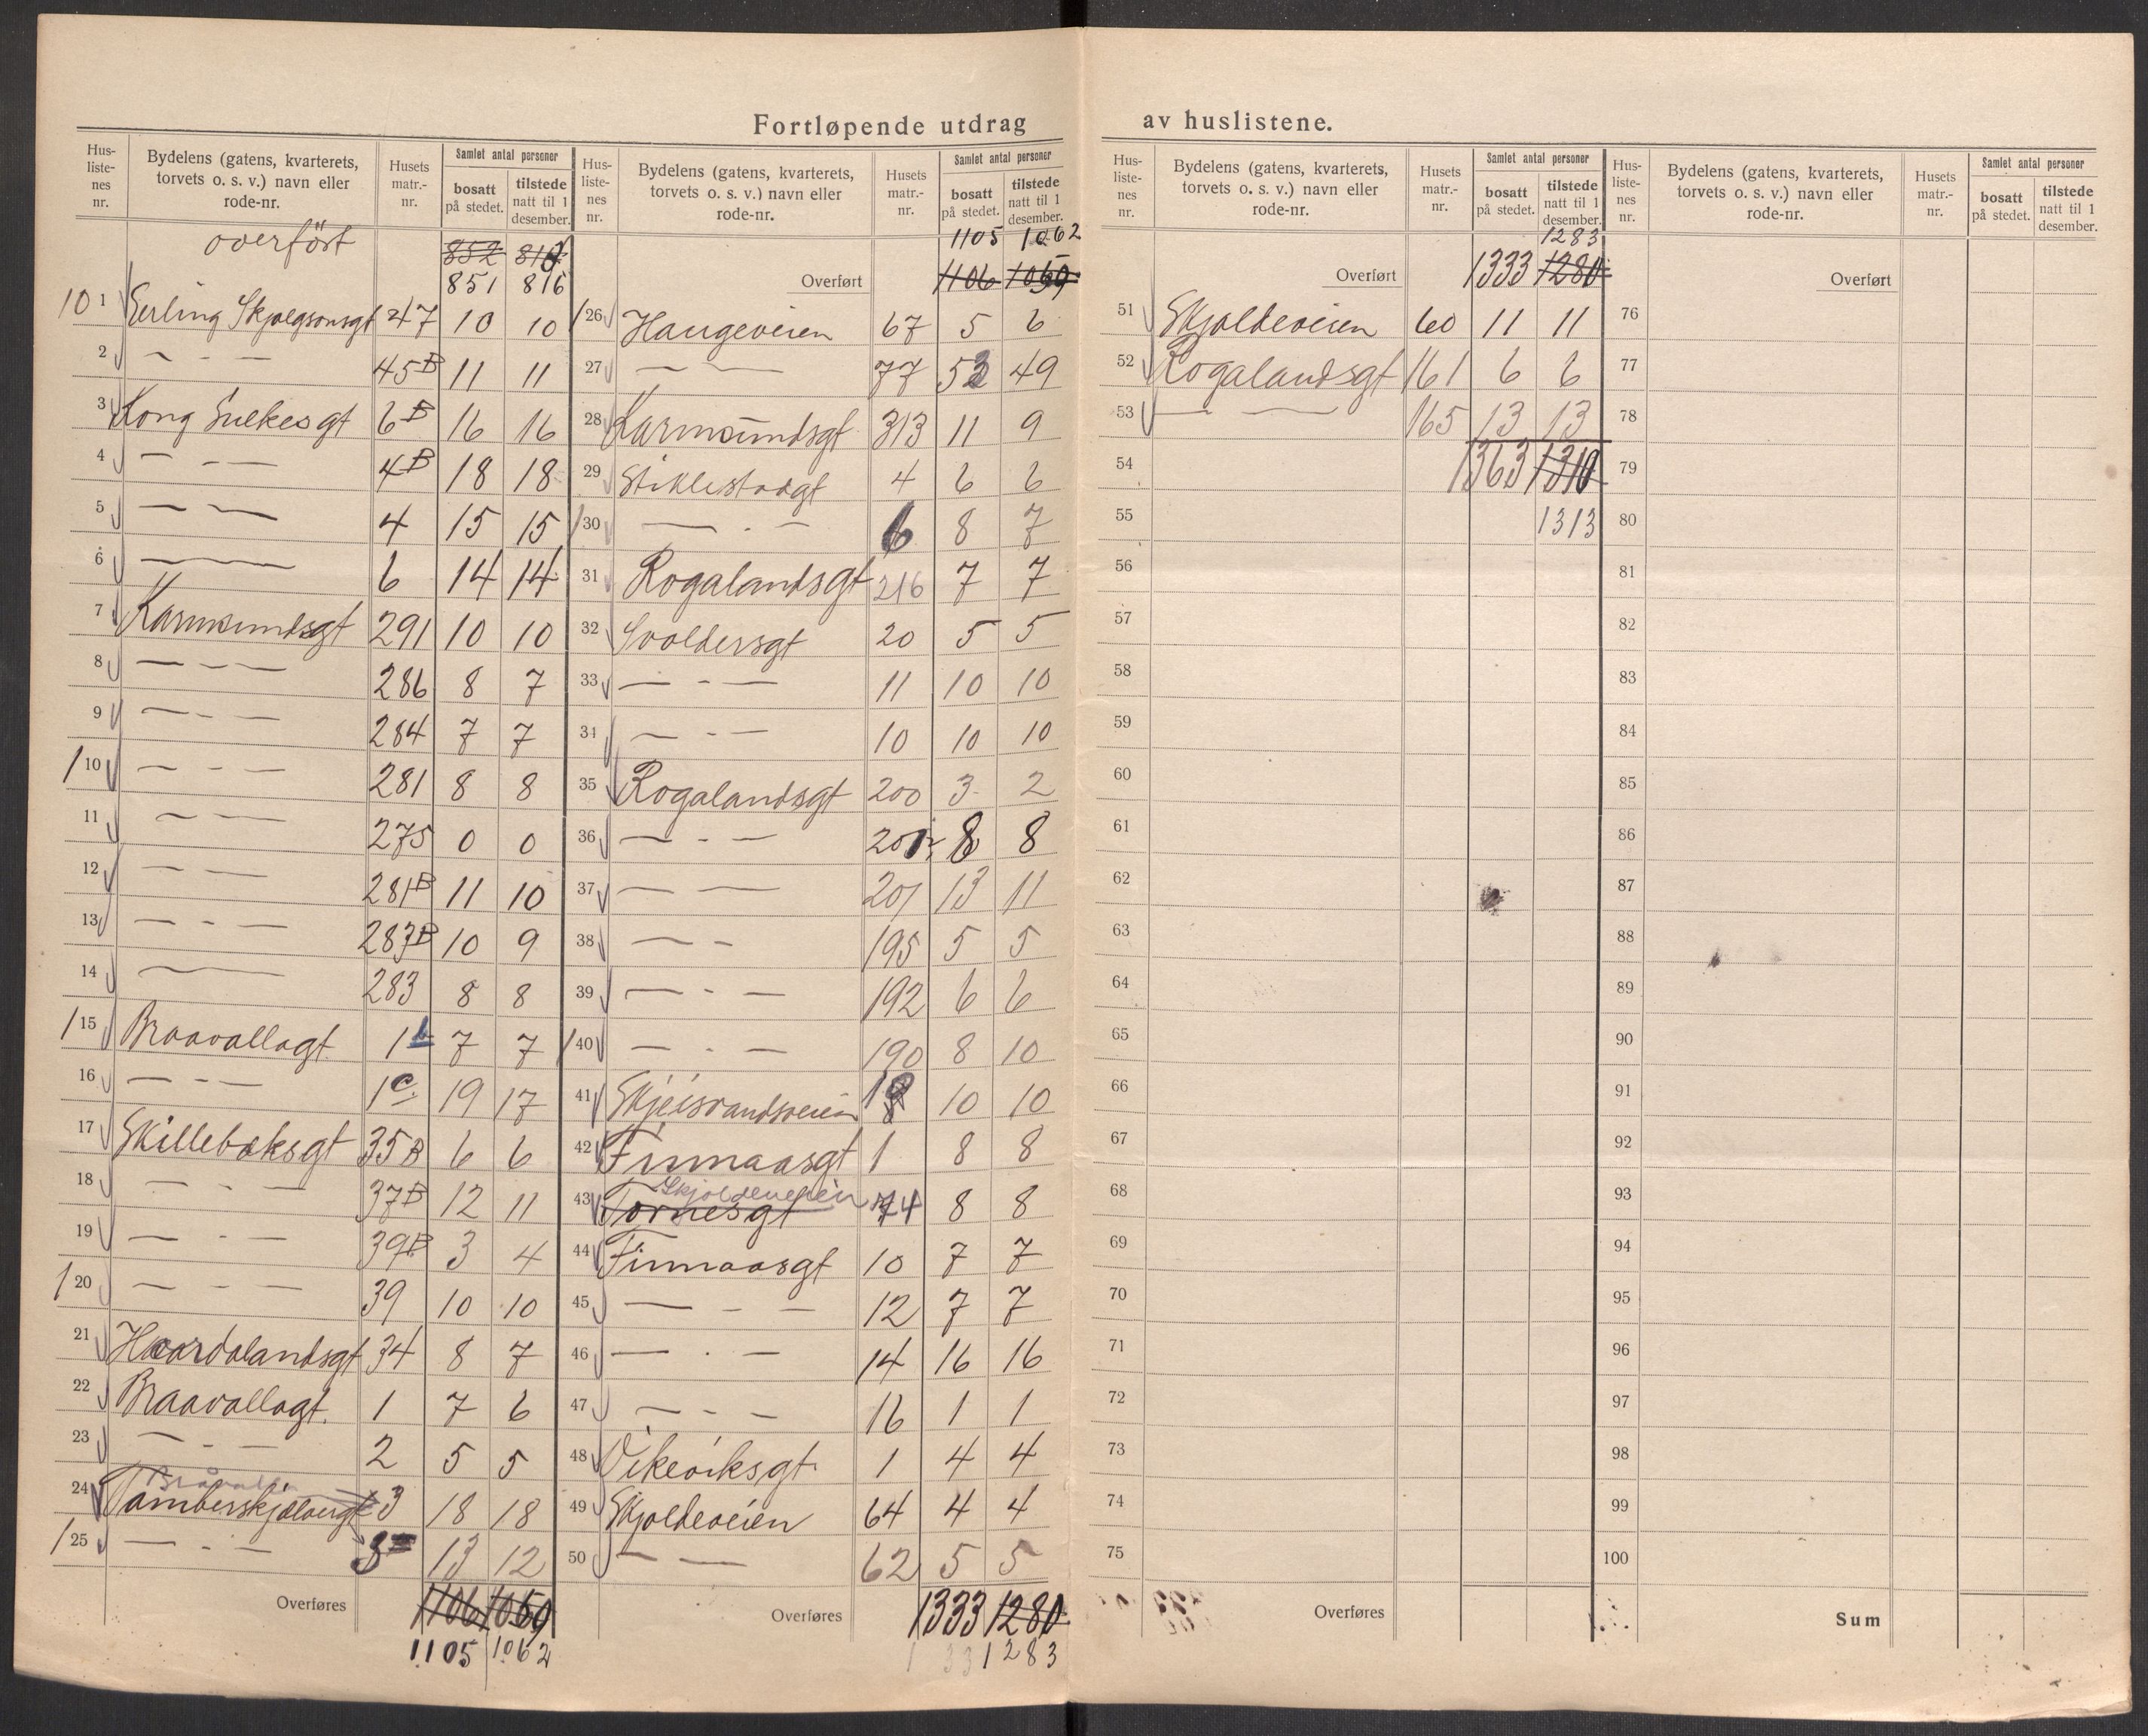 Fortløpende utdrag av huslistene.
Hus-liste-nes nr. Bydelens (gatens, kvarterets, torvets o. s. v.) navn eller rode-nr. Husets matr.-nr. Samlet antal personer bosatt på stedet. tilstede natt til 1 desember.
overført 852 816
851 816
10 1 Erling Skjalgsonsgt 47 10 10
2 — - — 45B 11 11
3 Kong Sulkesgt 6B 16 16
4 — - — 4B 18 18
5 — — 4 15 15
6 — — 6 14 14
7 Karmsundsgt 291 10 10
8 — - — 286 8 7
9 — - — 284 7 7
/10 — - — 281 8 8
11 — — 275 0 0
12 — — 281B 11 10
13 — - — 283B 10 9
14 — — 283 8 8
/15 Braavallagt 1b 7 7
16 — - — 1c 19 17
17 Skillebæksgt 35B 6 6
18 — - — 37B 12 11
19 — - — 39B 3 4
/20 — - — 39 10 10
21 Hardalandsgt 34 8 7
22 Braavallagt. 1 7 6
23 — - — 2 5 5
24 Tamberskjelvergt 3 18 18
/25 — - — 3 13 12
Overføres 1106 1059
1105 1062
Hus-liste-nes nr. Bydelens (gatens, kvarterets, torvets o. s. v.) navn eller rode-nr. Husets matr.-nr. Samlet antal personer bosatt på stedet. tilstede natt til 1 desember.
1105 1062
Overført 1106 1059
/26 Haugeveien 67 5 6
27 — — 77 53 49
28 Karmsundsgt 313 11 9
29 Stiklestadgt 4 6 6
/30 — - — 6 8 7
31 Rogalandsgt 216 7 7
32 Svoldersgt 20 5 5
33 — - — 11 10 10
34 — - — 10 10 10
35 Rogalandsgt 200 3 2
36 — - — 201 8 8
37 — — 201 13 11
38 — - 195 5 5
39 — - — 192 6 6
/40 — - — 190 8 10
41 Skjeisvandsveien 18 10 10
42 Finnaasgt 1 8 8
Skjoldeveien
43 Tornesgt 74 8 8
44 Finnaasgt 10 7 7
45 — - — 12 7 7
46 — - — 14 16 16
47 — - — 16 1 1
48 Vikeviksgt 1 4 4
49 Skjoldeveien 64 4 4
50 — — 62 5 5
Overføres 1333 1280
1283
Hus-liste-nes nr. Bydelens (gatens, kvarterets, torvets o. s. v.) navn eller rode-nr. Husets matr.-nr. Samlet antal personer bosatt på stedet. tilstede natt til 1 desember.
1283
Overført 1333 1280
51 Skjoldeveien 60 11 11
52 Rogalandsgt 161 6 6
53 — — 165 13 13
54 1363 1310
55 1313
56
57
58
59
60
61
62
63
64
65
66
67
68
69
70
71
72
73
74
75
Overføres
Hus-liste-nes nr. Bydelens (gatens, kvarterets, torvets o. s. v.) navn eller rode-nr. Husets matr.-nr. Samlet antal personer bosatt på stedet. tilstede natt til 1 desember.
Overført
76
77
78
79
80
81
82
83
84
85
86
87
88
89
90
91
92
93
94
95
96
97
98
99
100
Sum